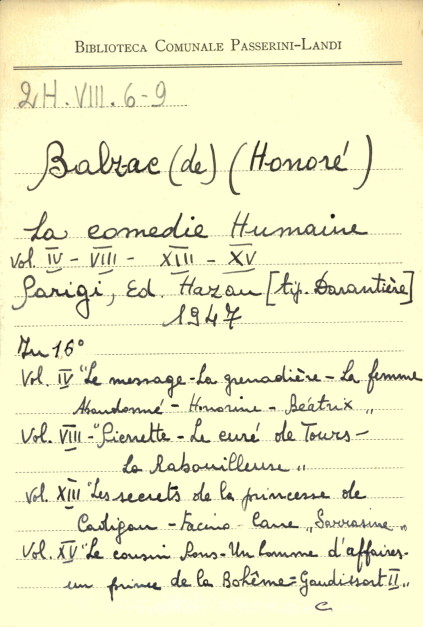 BIBLIOTECA COMUNALE PASSERINI-LANDI
2H.VIII.6-9
Balzac (de) (Honoré)
La comedie Humaine
Vol. IV - VIII - XIII - XV
Parigi, Ed. Hazan [tip. Darantière]
1947
In 16°
Vol. IV "Le message - La grenadière - La femme
Abandonné - Honorine - Béatrix "
Vol. VIII - "Pierrette - Le curé de Tours -
La Rabouilleuse "
Vol. XIII "Les secrets de la princesse de
Cadigan - Facino - Cane " Sarrasine "
Vol. XV "Le cousin Pons - Un homme d'affaires -
un prince de la Bohême = Gaudissart II "
C